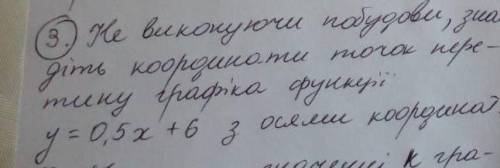 3. Не виконуючи побудови, зна
діть координати точок пере-
тину графіка функції
y = 0,5x + 6 з осями координат
значенні k гра-